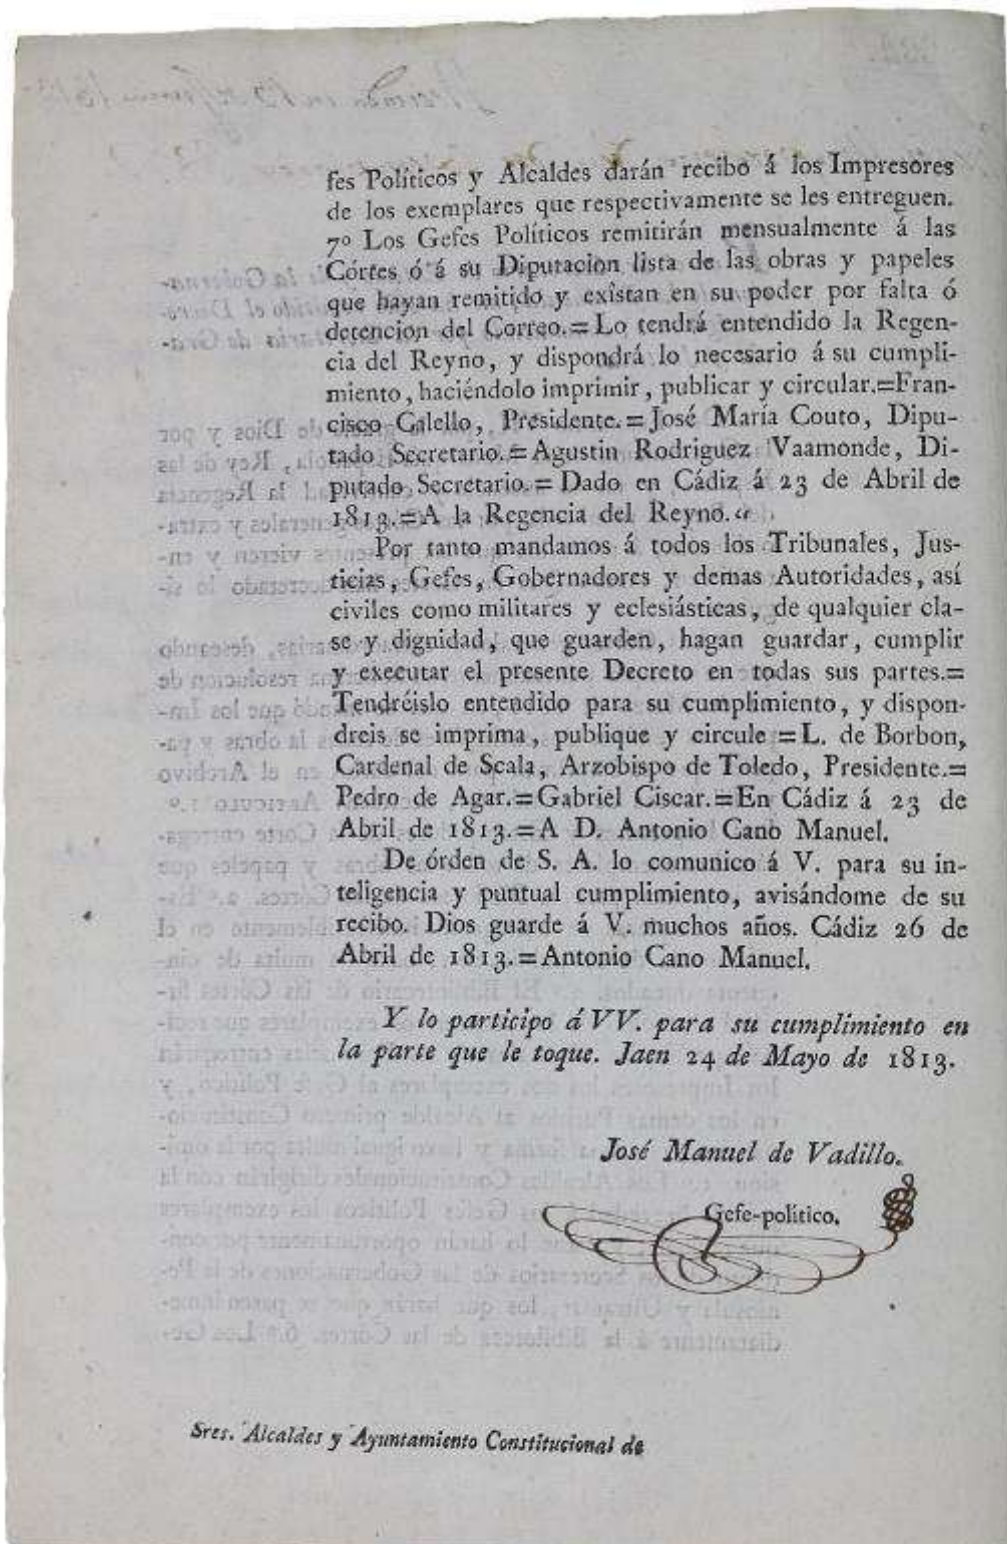 fes Políticos y Alcaldes darán recibo á los Impresores
de los exemplares que respectivamente se les entreguen.
7º Los Gefes Políticos remitirán mensualmente á las
Córtes ó á su Diputacion lista de las obras y papeles
que hayan remitido y existan en su poder por falta ó
detencion del Correo.=Lo tendrá entendido la Regen-
cia del Reyno, y dispondrá lo necesario á su cumpli-
miento, haciéndolo imprimir, publicar y circular.=Fran-
cisco Calello, Presidente.=José María Couto, Dipu-
tado Secretario.=Agustin Rodriguez Vaamonde, Di-
putado Secretario.=Dado en Cádiz á 23 de Abril de
1813.=A la Regencia del Reyno.“
Por tanto mandamos á todos los Tribunales, Jus-
ticias, Gefes, Gobernadores y demas Autoridades, así
civiles como militares y eclesiásticas, de qualquier cla-
se y dignidad, que guarden, hagan guardar, cumplir
y executar el presente Decreto en todas sus partes.=
Tendréislo entendido para su cumplimiento, y dispon-
dreis se imprima, publique y circule=L. de Borbon,
Cardenal de Scala, Arzobispo de Toledo, Presidente.=
Pedro de Agar.=Gabriel Ciscar.=En Cádiz á 23 de
Abril de 1813.=A D. Antonio Cano Manuel.
De órden de S. A. lo comunico á V. para su in-
teligencia y puntual cumplimiento, avisándome de su
recibo. Dios guarde á V. muchos años. Cádiz 26 de
Abril de 1813.=Antonio Cano Manuel.
Y lo participo á VV. para su cumplimiento en
la parte que le toque. Jaen 24 de Mayo de 1813.
José Manuel de Vadillo.
Gefe-político.
Sres. Alcaldes y Ayuntamiento Constitucional de